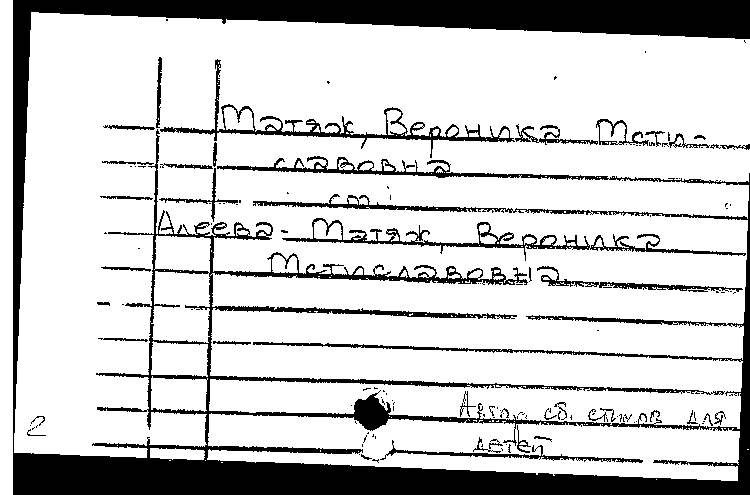 Матяж, Вероника Мсти-
славовна
см.:
Алеева-Матяж, Вероника
Мстиславовна
Автор сб. стихов для
детей
2